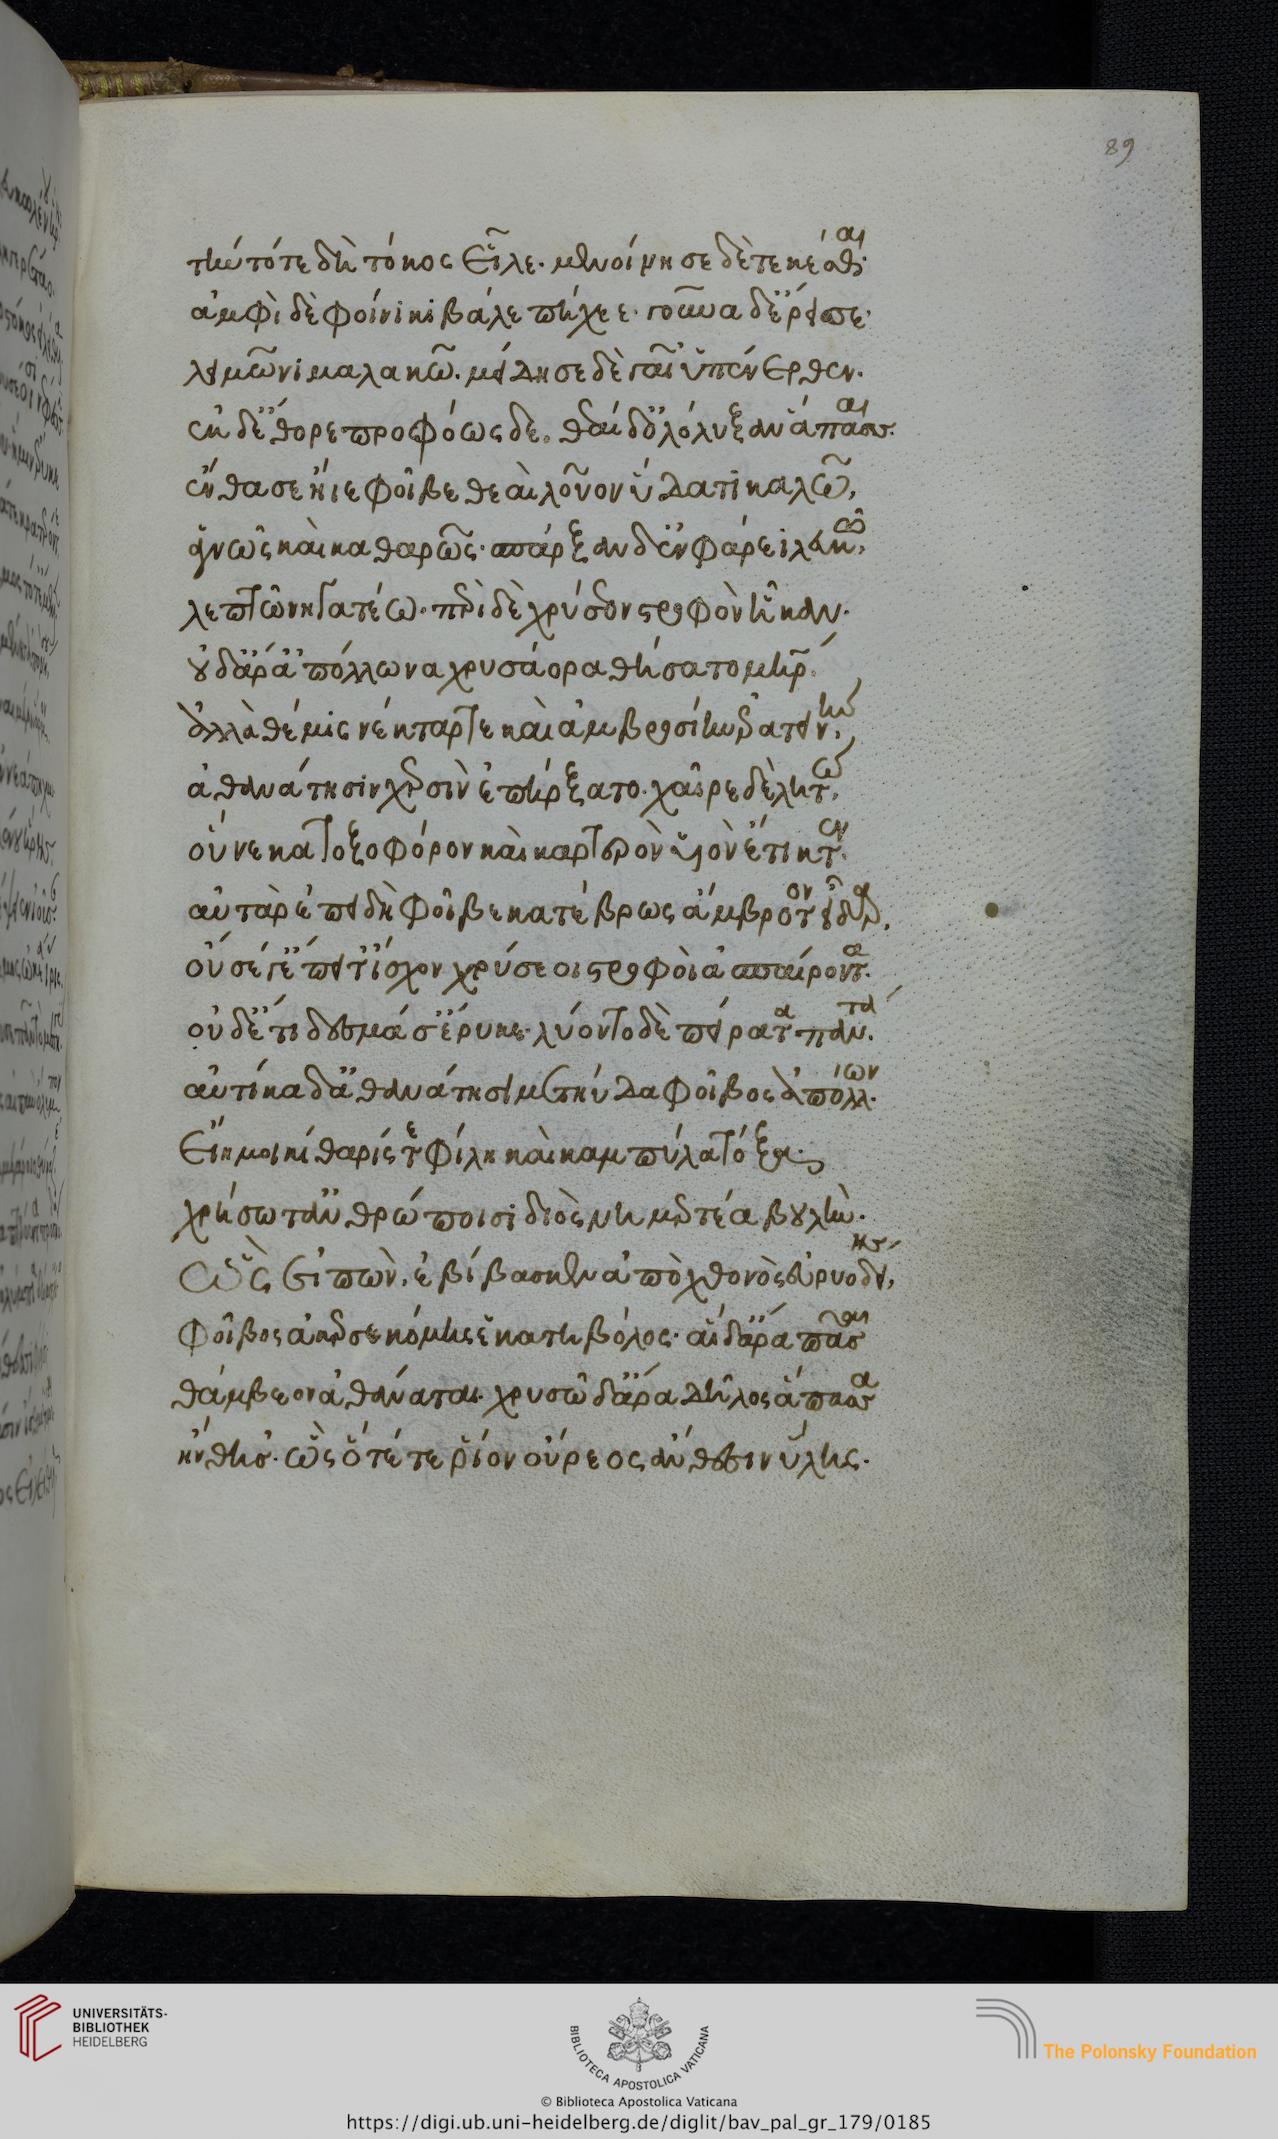 89
τὴν τότε δὴ τόκος εἷλε. μενοίνησε δὲ τεκέσθαι.
ἀμφὶ δὲ φοίνικι βάλε πήχεε. γοῦνα δ' ἔρεισε
λειμῶνι μαλακῶ. μείδησε δὲ γαῖ' ὑπένερθεν.
ἐκ δ' ἔθορε προςφόως δε. θεαὶ δ' ὀλόλυξαν ἅπασαι.
ἔνθα σε ἤιε φοῖβε θεαὶ λοῦον ὕδατι καλῶ,
ἁγνῶς καὶ καθαρῶς. σπάρξαν δ' ἐν φάρει λευκῶ,
λεπτῶ νηγατέω. περὶ δὲ χρύσεον στρόφον ἧκαν.
οὐδ' ἄρ' ἀπόλλωνα χρυσάορα θήσατο μήτηρ.
ἀλλὰ θέμις νέκταρ τε καὶ ἀμβροσίην ἐρατεινὴν,
ἀθανάτησιν χερσὶν ἐπήρξατο. χαῖρε δὲ λητὼ,
οὕνεκα τοξοφόρον καὶ καρτερὸν υἱὸν ἔτικτεν.
αὐτὰρ ἐπειδὴ φοῖβε κατέβρως ἄμβροτον εἶδαρ,
οὔ σέ γ' ἔπειτ' ἴσχον χρύσεοι στρόφοι ἀσπαίροντα.
οὐδ' ἔτι δεσμά σ' ἔρυκε. λύοντο δὲ πείρατα πάντα.
αὐτίκα δ' ἀθανάτησι μετηύδα φοῖβος ἀπόλλων.
εἴη μοι κίθαρίς τε φίλη καὶ καμπύλα τόξα.
χρήσω τ' ἀνθρώποισι διὸς νημερτέα βουλήν.
ὣς εἰπὼν, ἐβίβασκεν ἀπὸ χθονὸς εὐρυοδείης,
φοῖβος ἀκερσεκόμης ἑκατηβόλος. αἱ δ' ἄρα πᾶσαι
θάμβεον ἀθάναται. χρυσῶ δ' ἄρα δῆλος ἅπασα
ἤνθησ'. ὡς ὅτέ τε ῥίον οὔρεος ἄνθεσιν ὕλης.
UNIVERSITÄTS-
BIBLIOTHEK
HEIDELBERG
BIBLIOTECA APOSTOLICA VATICANA
© Biblioteca Apostolica Vaticana
The Polonsky Foundation
https://digi.ub.uni-heidelberg.de/diglit/bav_pal_gr_179/0185